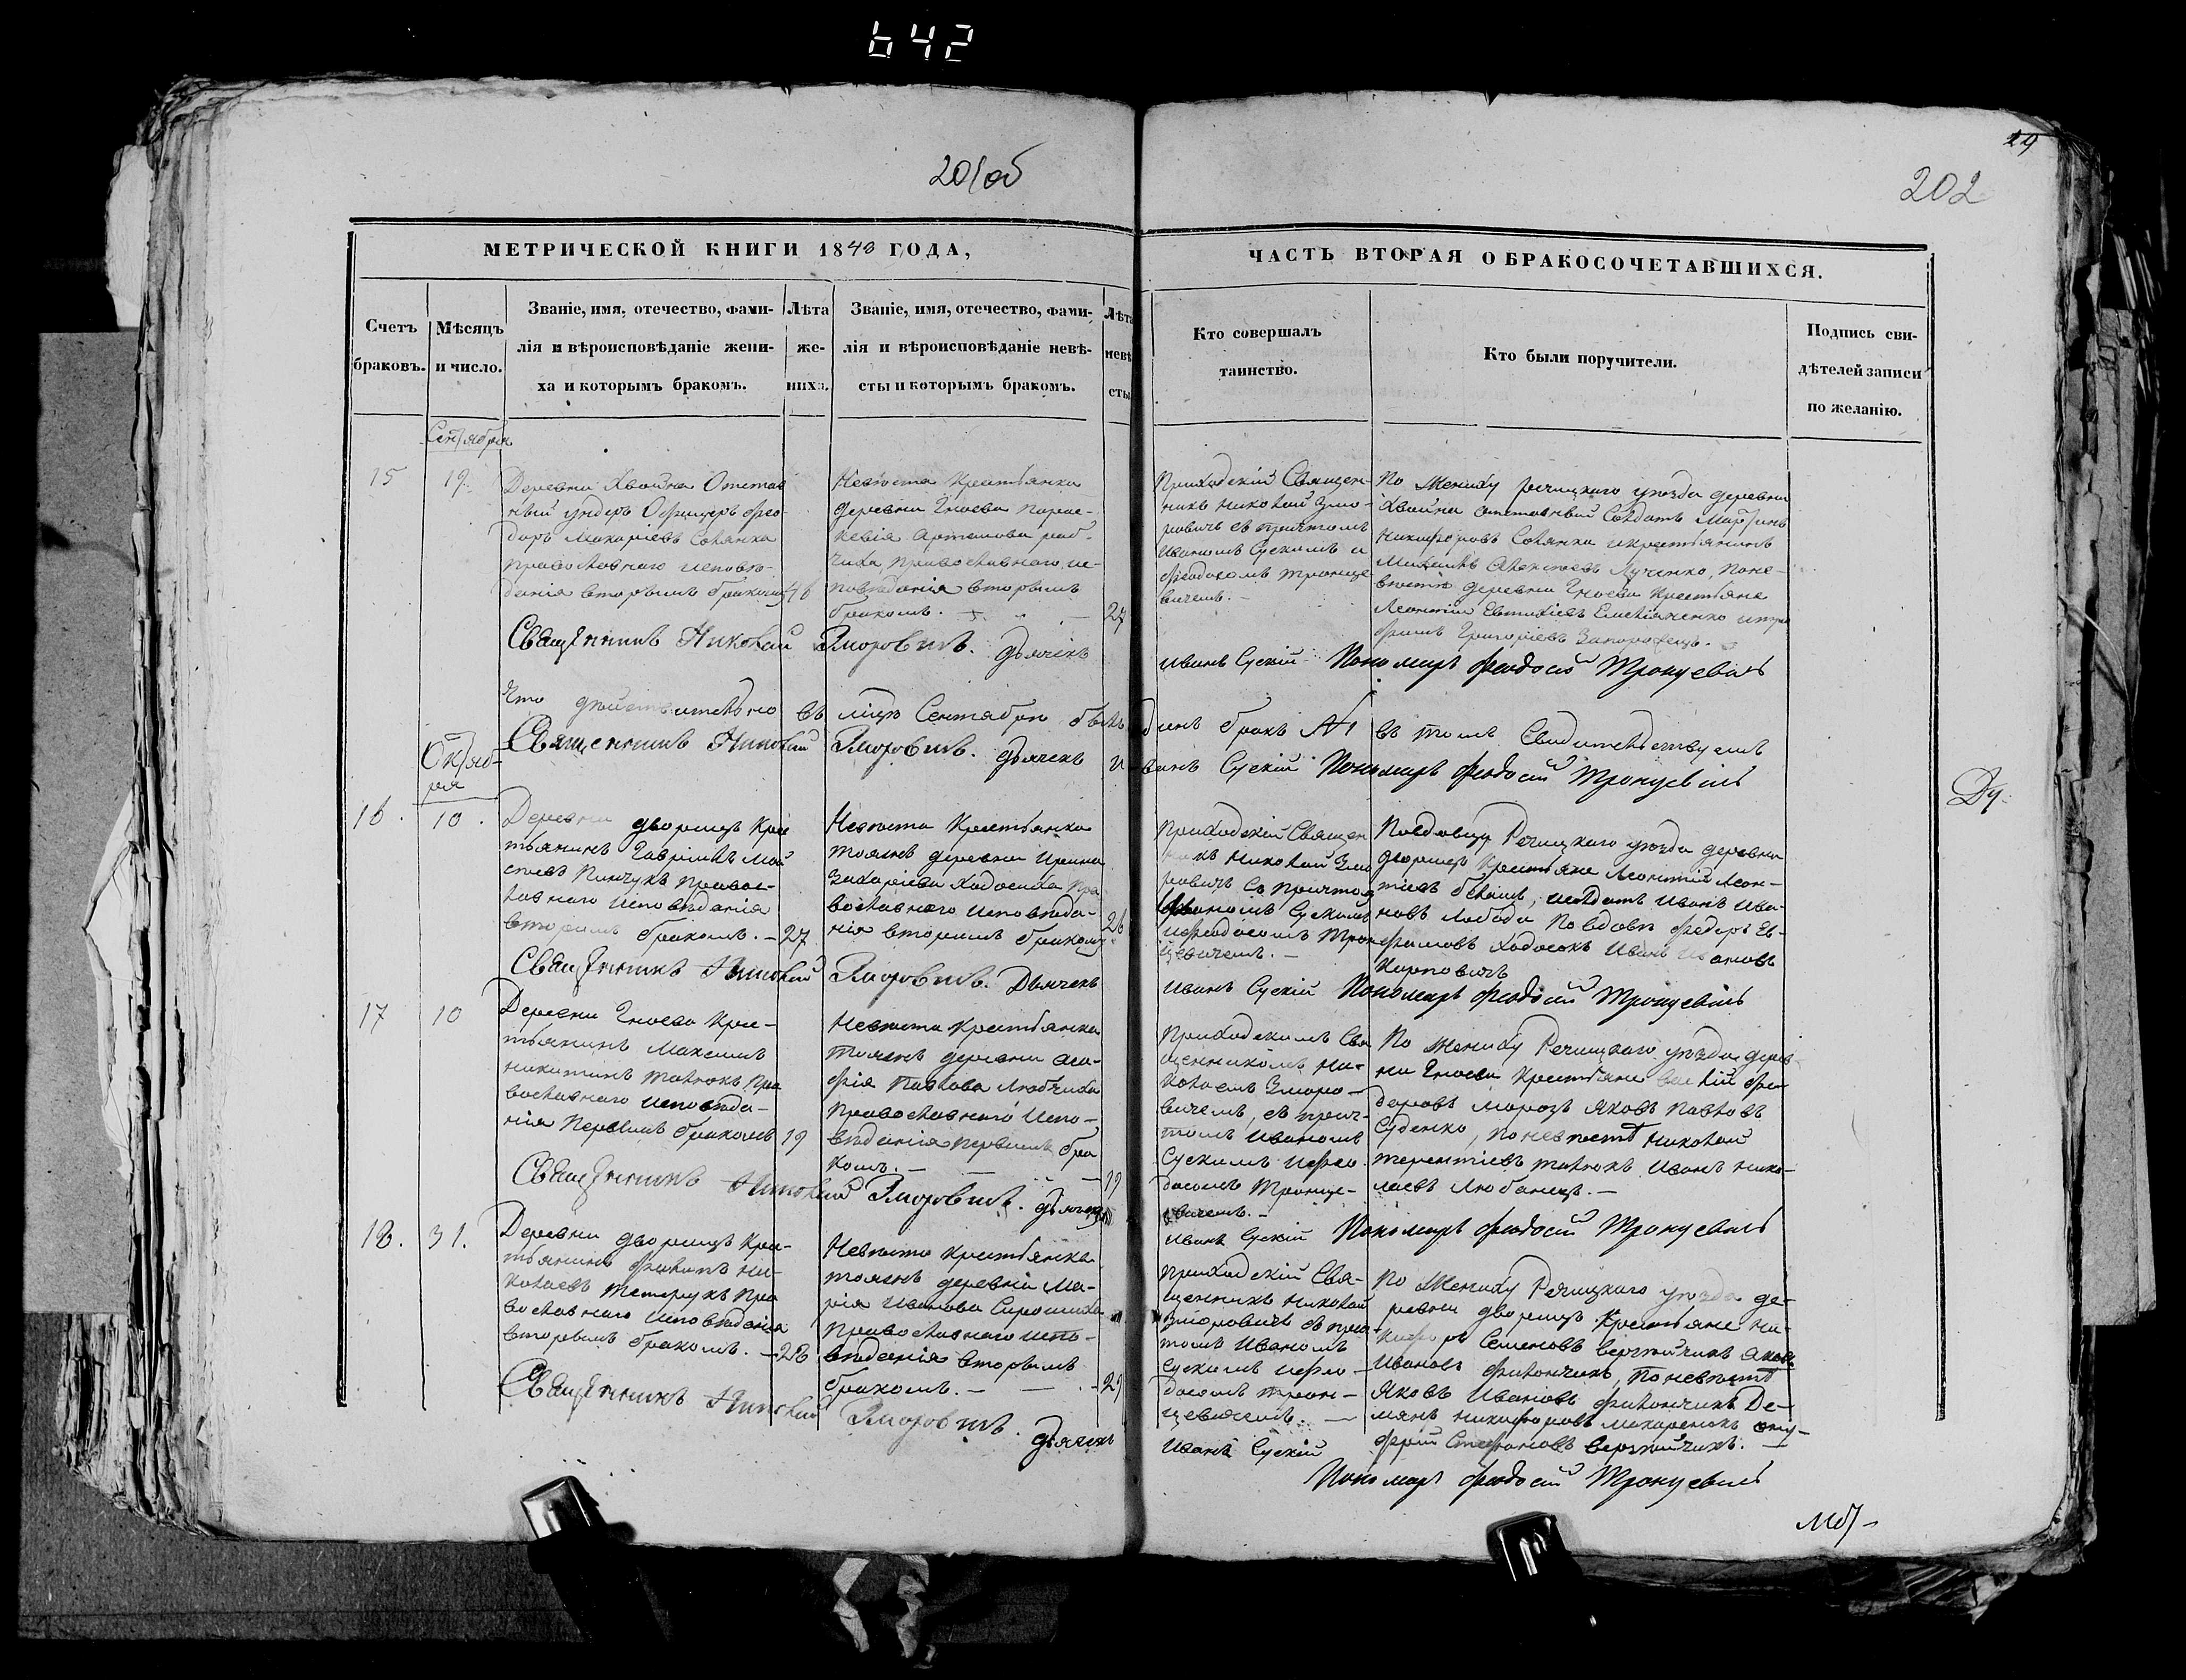 642
201об
29
202
МЕТРИЧЕСКОЙ КНИГИ 1843 ГОДА,
ЧАСТЬ ВТОРАЯ О БРАКОСОЧЕТАВШИХСЯ.
Счетъ
браковъ.
Мѣсяцъ
и число.
Званіе, имя, отечество, фами-
лія и вѣроисповѣданіе жени-
ха и которымъ бракомъ.
Лѣта
же-
ниха.
Званіе, имя, отечество, фами-
лія и вѣроисповѣданіе невѣ-
сты и которымъ бракомъ.
Лѣта
невѣ
сты
Кто совершалъ
таинство.
Кто были поручители.
Подпись сви-
дѣтелей записи
по желанію.
Сентября
15
19.
Деревни Хвойна Отстав
ный ундеръ Офицеръ Фео-
доръ Макаріевъ Солянка
православнаго исповѣ-
данія вторымъ бракомъ
46
Невѣста Крестьянка
деревни Гноева Парас-
кевія Артемова
православнаго ис-
повѣданія вторымъ
бракомъ.
27
Приходскій Священ-
никъ Николай Змо-
ровичъ съ причтомъ
Иваномъ Сускимъ и
Феодосомъ Тронце
вичемъ. -
По Жениху речицкаго уѣзда деревни
Хвойна отставный Солдатъ Мартинъ
Никифоровъ Солянка и крестьянинъ
Михаилъ Алексѣевъ Лученко, поне-
вѣстѣ деревни Гноева Крестьяне
Леонтій Евтихіевъ Емельяненко и
Григоріевъ Запорожецъ.
Священникъ Николай Зморовичъ. Дьячекъ
Иванъ Сускій Пономарь Феодосій Тронцевичъ
Что дѣйствительно въ мцѣ Сентябрѣ былъ одинъ бракъ №1 въ томъ Свидѣтельствуемъ
Священникъ Николай Зморовичъ. Дьячекъ Иванъ Сускій Пономарь Феодосій Тронцевичъ
Октяб-
ря
Ду-
16.
10.
Деревни дворищъ Крес
тьянинъ Гавріилъ Мой
сеевъ Пинчукъ правос-
лавнаго исповѣданія
вторымъ бракомъ. -
27
Невѣста Крестьянка
тояжъ деревни Ирина
Захаріева Ходосиха Пра
вославнаго исповѣда-
нія вторымъ бракомъ
26
Приходскій Священ
никъ Николай Змо
ровичъ Со причтом
Иваномъ Сускимъ
и Феодосомъ Трон
цевичемъ. -
Повдовцу Речицкаго уѣзда деревни
дворищъ Крестьяне Леонтій Леон-
тіевъ солдатъ Иванъ Ива-
новъ Лобода Повдовѣ Федоръ Ев-
фимовъ Ходосокъ Иванъ
Карповичъ
Священникъ Николай Зморовичъ. Дьячекъ
Иванъ Сускій Пономарь Феодосій Тронцевичъ
17
10
Деревни Гноева Крес-
тьянинъ Максимъ
Никитинъ Талюкъ Пра
вославнаго исповѣда-
нія Первымъ бракомъ
19
Невѣста Крестьянка
тояжъ деревни Ага-
фія Павлова Любчиха
Православнаго Испо-
вѣданія первымъ бра
комъ. -
19
Приходскимъ Свя
щенникомъ Ни-
колаемъ Зморо-
вичемъ, съ прич-
томъ Иваномъ
Сускимъ и Фео-
досомъ Тронце-
вичемъ. -
По Жениху Речицкаго уѣзда дерев
ни Гноева Крестьяне Василій Фе-
доровъ Морозъ Яковъ Павловъ
Суденко, по невѣстѣ Николай
Терентіевъ Талюкъ Иванъ Нико-
лаевъ Любанецъ. -
Священникъ Николай Зморовичъ. Дьячекъ
Иванъ Сускій Пономарь Феодосій Тронцевичъ
18.
31.
Деревни дворищъ Крес-
тьянинъ Филипъ Ни-
колаевъ Тетерукъ Пра
вославнаго исповѣданія
вторымъ бракомъ. -
28
Невѣста крестьянка
тояжъ деревни Ма-
рія Иванова Сирошиха
православнаго испо-
вѣданія вторымъ
бракомъ. -
29
Приходскій Свя-
щенникъ Николай
Зморовичъ съ прич-
томъ Иваномъ
Сускимъ и Фео-
досомъ Трон-
цевичемъ. -
По Жениху Речицкаго уѣзда де-
ревни дворищъ Крестьяне Ни-
кифоръ Семеновъ Яковъ
Ивановъ Филончикъ, Поневѣстѣ
Яковъ Ивановъ Филончикъ Де-
мянъ Никифоровъ Макаренокъ Ону-
фрій Стефановъ
Священникъ Николай Зморовичъ. Дьячекъ
Иванъ Сускій
Пономарь Феодосій Тронцевичъ